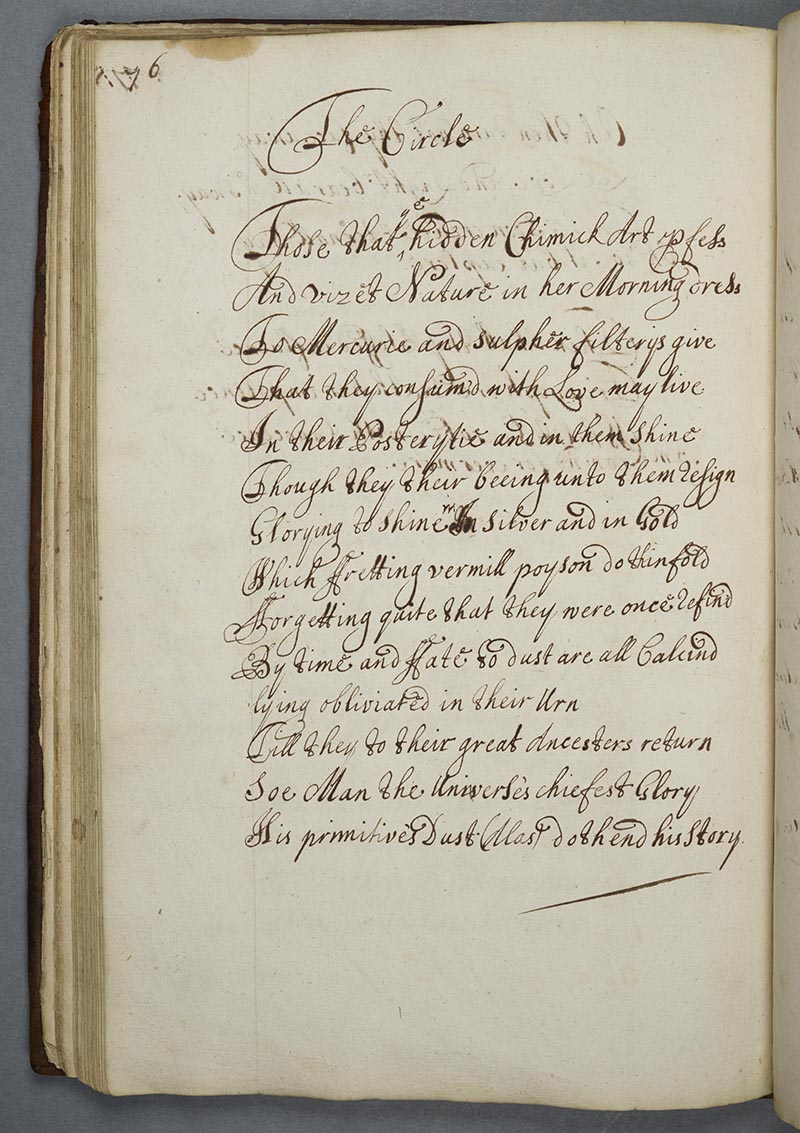 76
The Circle
Those that ye hidden Chimick Art pfess
And vizet Nature in her Morning dress
To Mercurie and sulpher filterys give
That they consum'd with Love may live
In their Posterytie and in them shine
Though they their beeing unto them resign
Glorying to shine in silver and in Gold
Which ffretting vermill poyson doth infold
fforgetting quite that they were once refind
By time and ffate to dust are all Calcind
lying obliviated in their Urn
Till they to their great Ancesters return
Soe Man the Universe's chiefest Glory
His primitive's Dust (Alas) doth end his Story